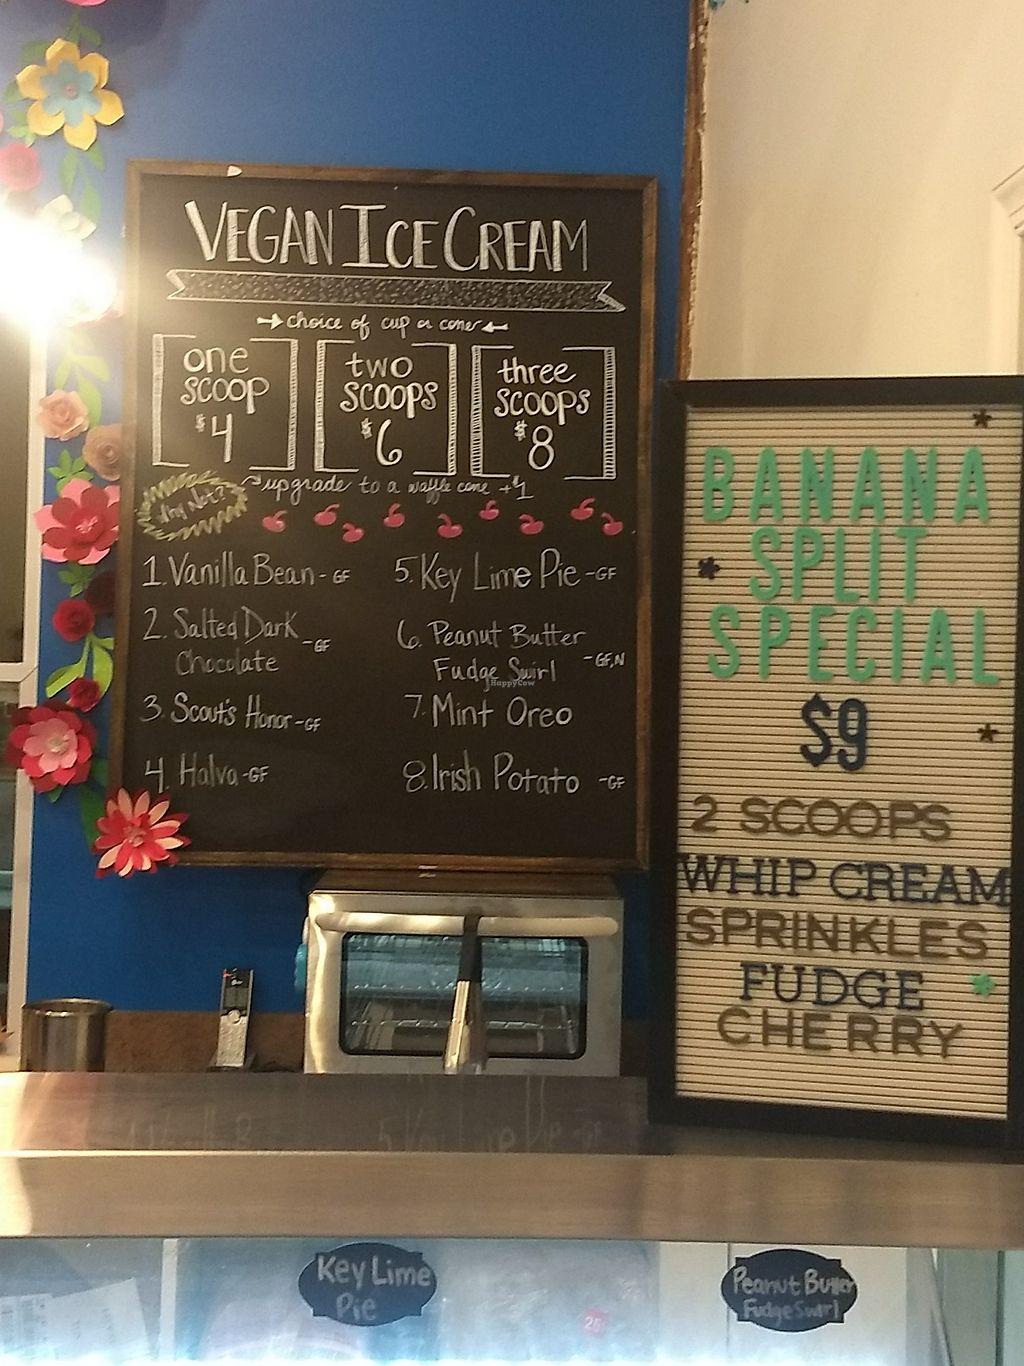 VEGAN ICE CREAM
choice of cup or cone
one scoop $4
two scoops $6
three scoops $8
Why Not?
upgrade to a waffle cone +$1
1. Vanilla Bean - GF
2. Salted Dark
Chocolate - GF
3. Scout's Honor - GF
4. Halva - GF
5. Key Lime Pie - GF
6. Peanut Butter
Fudge Swirl - GF, N
7. Mint Oreo
8. Irish Potato - GF
HappyCow
BANANA
SPLIT
SPECIAL
$9
2 SCOOPS
WHIP CREAM
SPRINKLES
FUDGE
CHERRY
Key Lime
Pie
Peanut Butter
Fudge Swirl
25